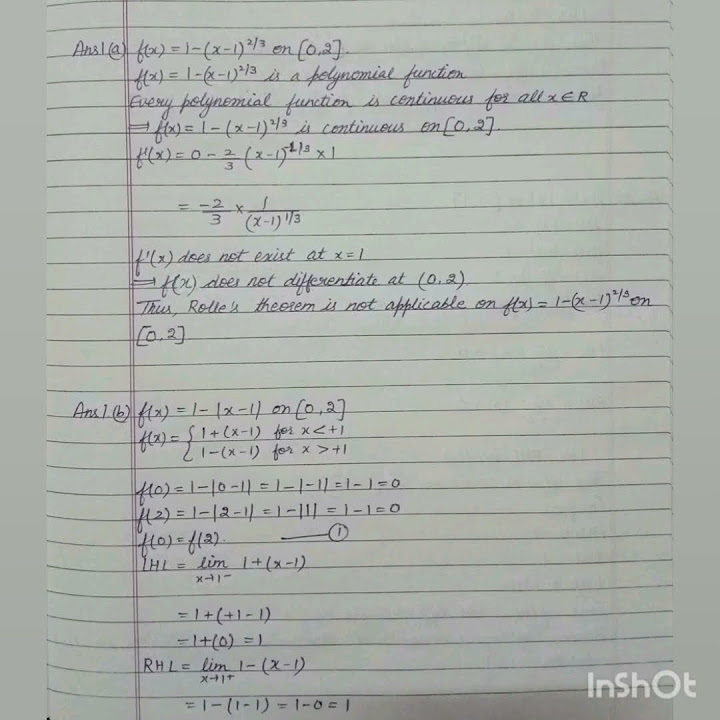 Ans1(a) f(x) = 1-(x-1)^2/3 on [0,2].
f(x) = 1-(x-1)^2/3 is a polynomial function
Every polynomial function is continuous for all x ∈ R
⟹ f(x) = 1-(x-1)^2/3 is continuous on [0,2].
f'(x) = 0 - 2/3 (x-1)^-1/3 × 1
= -2/3 × 1/(x-1)^1/3
f'(x) does not exist at x=1
⟹ f(x) does not differentiate at (0,2)
Thus, Rolle's theorem is not applicable on f(x) = 1-(x-1)^2/3 on
[0,2]
Ans1(b) f(x) = 1-|x-1| on [0,2]
f(x) = { 1+(x-1) for x<+1
1-(x-1) for x>+1
f(0) = 1-|0-1| = 1-|-1| = 1-1 = 0
f(2) = 1-|2-1| = 1-|1| = 1-1 = 0
f(0) = f(2). —— ①
LHL = lim x→1- 1+(x-1)
= 1+(+1-1)
= 1+(0) = 1
RHL = lim x→1+ 1-(x-1)
= 1-(1-1) = 1-0 = 1
InShOt